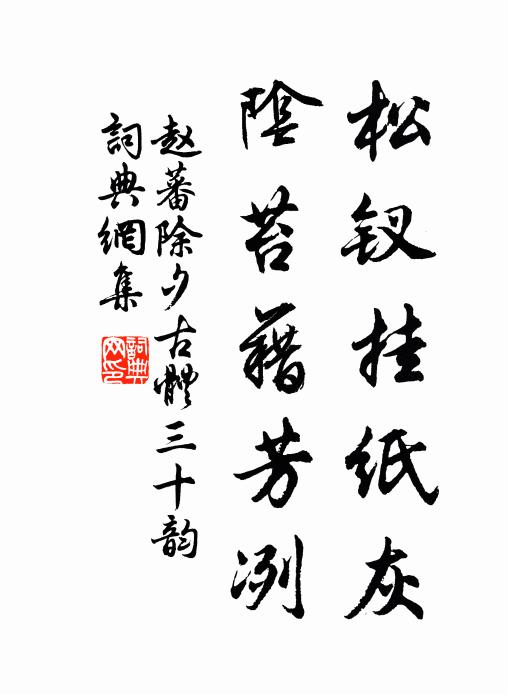 松钗挂纸灰
陰苔藉芳冽
赵蕃除夕古體三十韵
詞典網集
詞典
网印